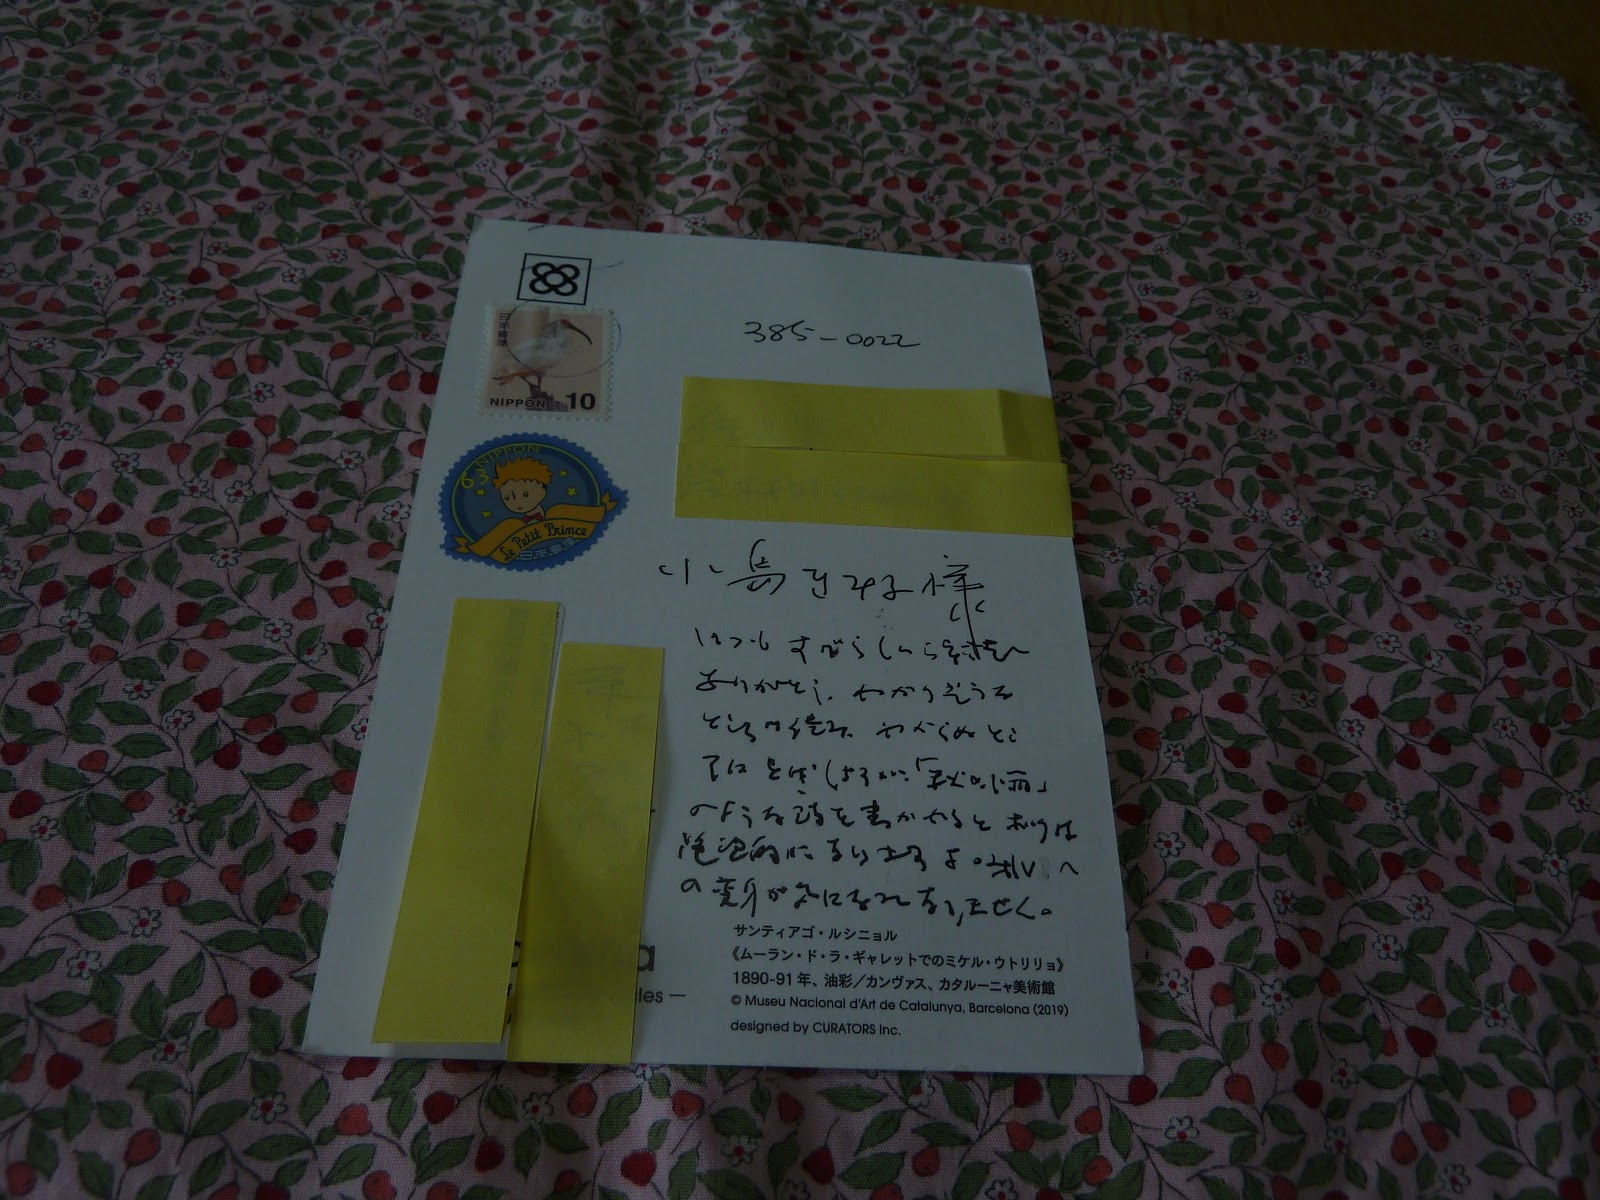 日本郵便
NIPPON 10
63 NIPPON
Le Petit Prince
日本郵便
385-0022
小島きみ子様
いつも すばらしい
ありがとう、わかりそうな
ところ わからぬとこ
「秋の雨」
のような詩を書かれると ボクは
絶望的になりますよ。
の変身が気になってなりません。
サンティアゴ・ルシニョル
《ムーラン・ド・ラ・ギャレットでのミケル・ウトリリョ》
1890-91年、油彩／カンヴァス、カタルーニャ美術館
© Museu Nacional d'Art de Catalunya, Barcelona (2019)
designed by CURATORS Inc.